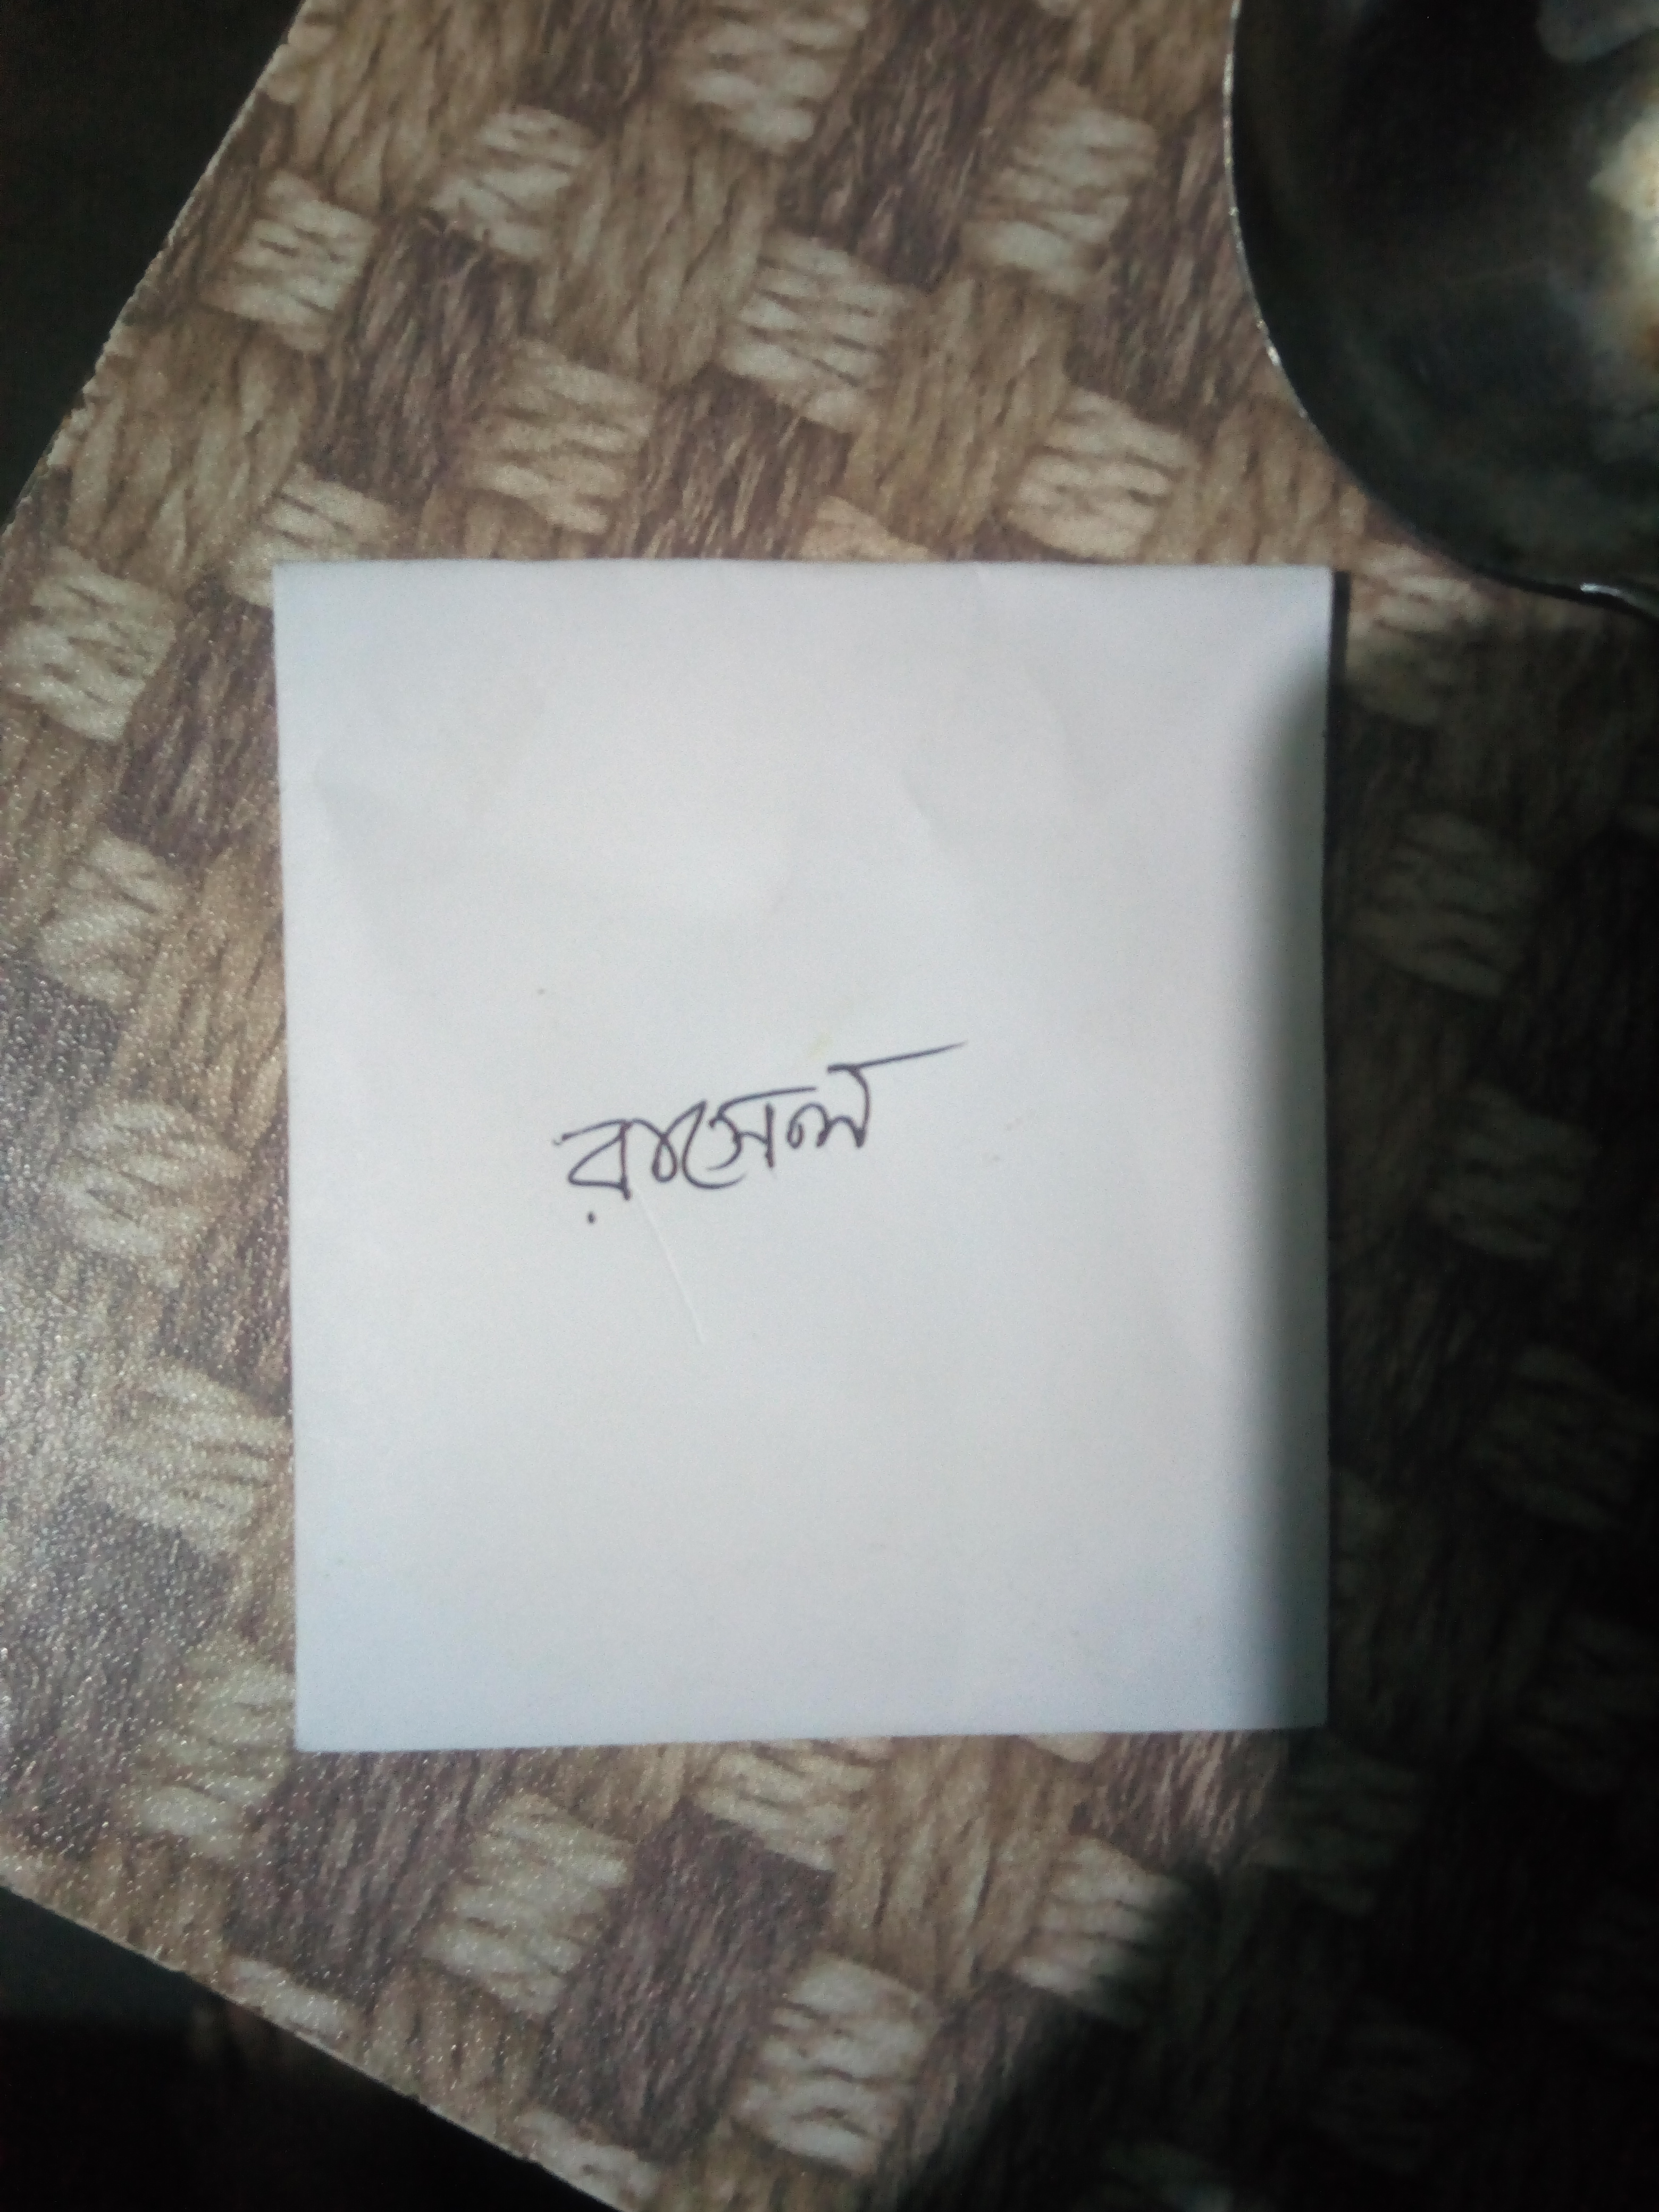 রাসেল